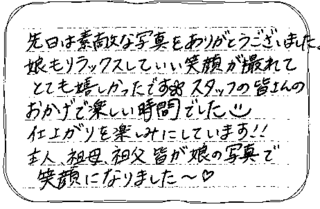 先日は素敵な写真をありがとうございました。
娘もリラックスしていい笑顔が撮れて
とても嬉しかったです スタッフの皆さんの
おかげで楽しい時間でした
仕上がりを楽しみにしています!!
主人、祖母、祖父 皆が娘の写真で
笑顔になりました〜♡